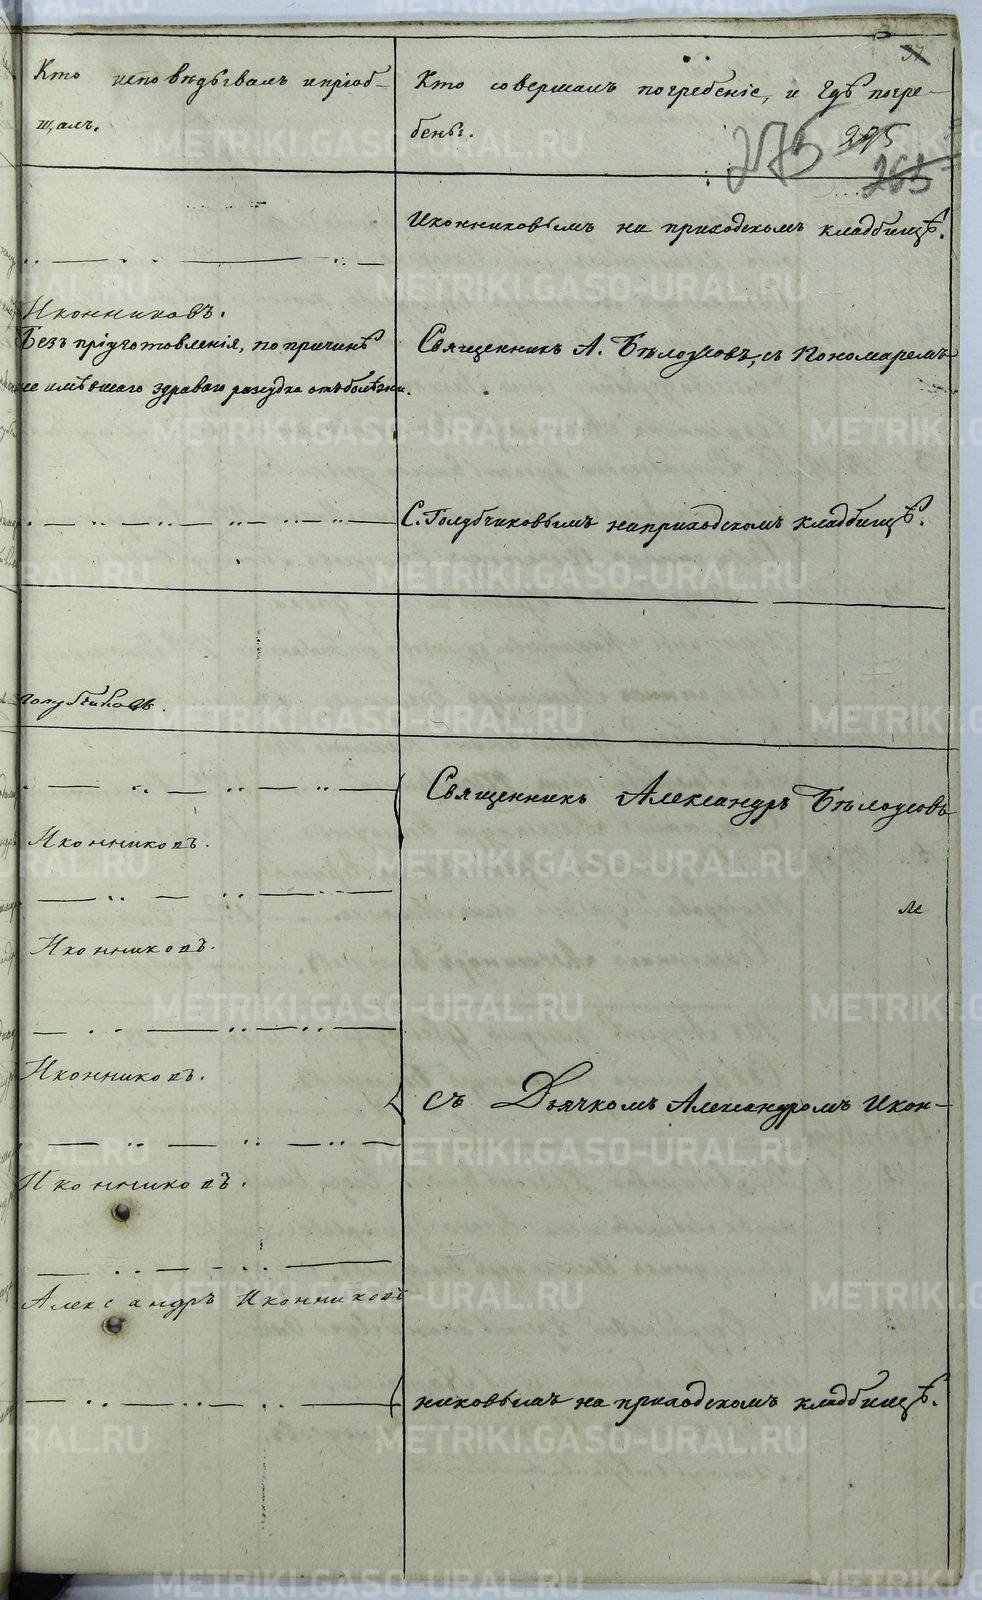 37
Кто исповѣдывалъ и пріоб-
щалъ.
Кто совершалъ погребеніе, и гдѣ погре-
бены.
275 275
265
Иконниковымъ на приходскомъ кладбищѣ.
Иконниковъ.
Безъ пріуготовленія, по причинѣ
не имѣвшаго здраваго разсудка отъ болѣзни.
Священникъ А. Бѣлоусовъ, съ Пономаремъ
С. Голубчиковымъ на приходскомъ кладбищѣ.
Голубчиковъ.
Священникъ Александръ Бѣлоусовъ
Иконниковъ.
Иконниковъ.
Иконниковъ.
съ Дьячкомъ Александромъ Икон-
Иконниковъ.
Александръ Иконниковъ
никовымъ на приходскомъ кладбищѣ.
METRIKI.GASO-URAL.RU